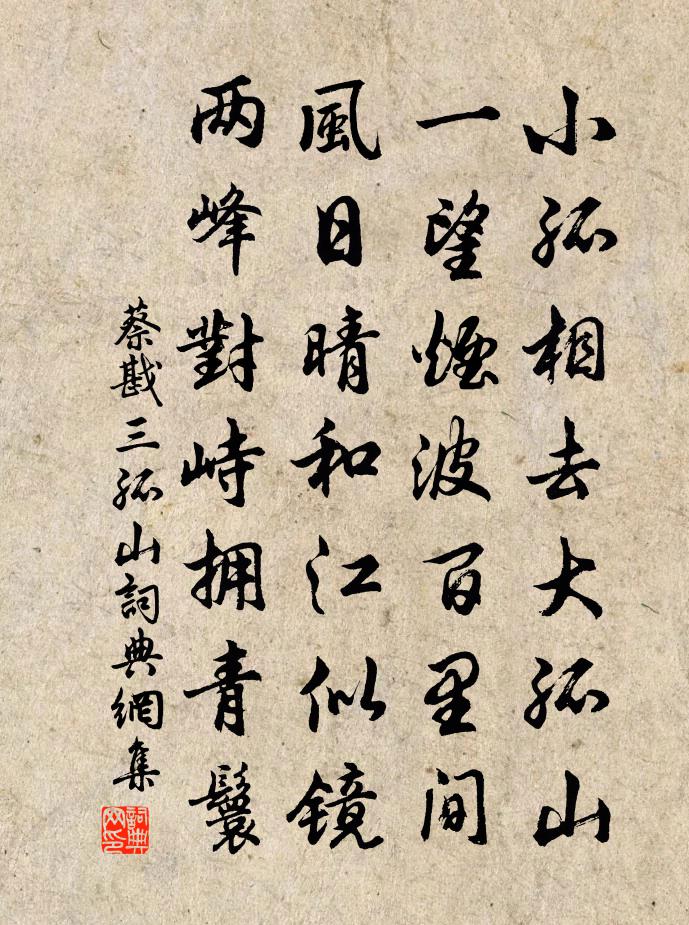 小孤相去大孤山
一望煙波百里間
風日晴和江似鏡
两峰對峙拥青鬟
蔡戡三孤山詞典網集
詞典网印